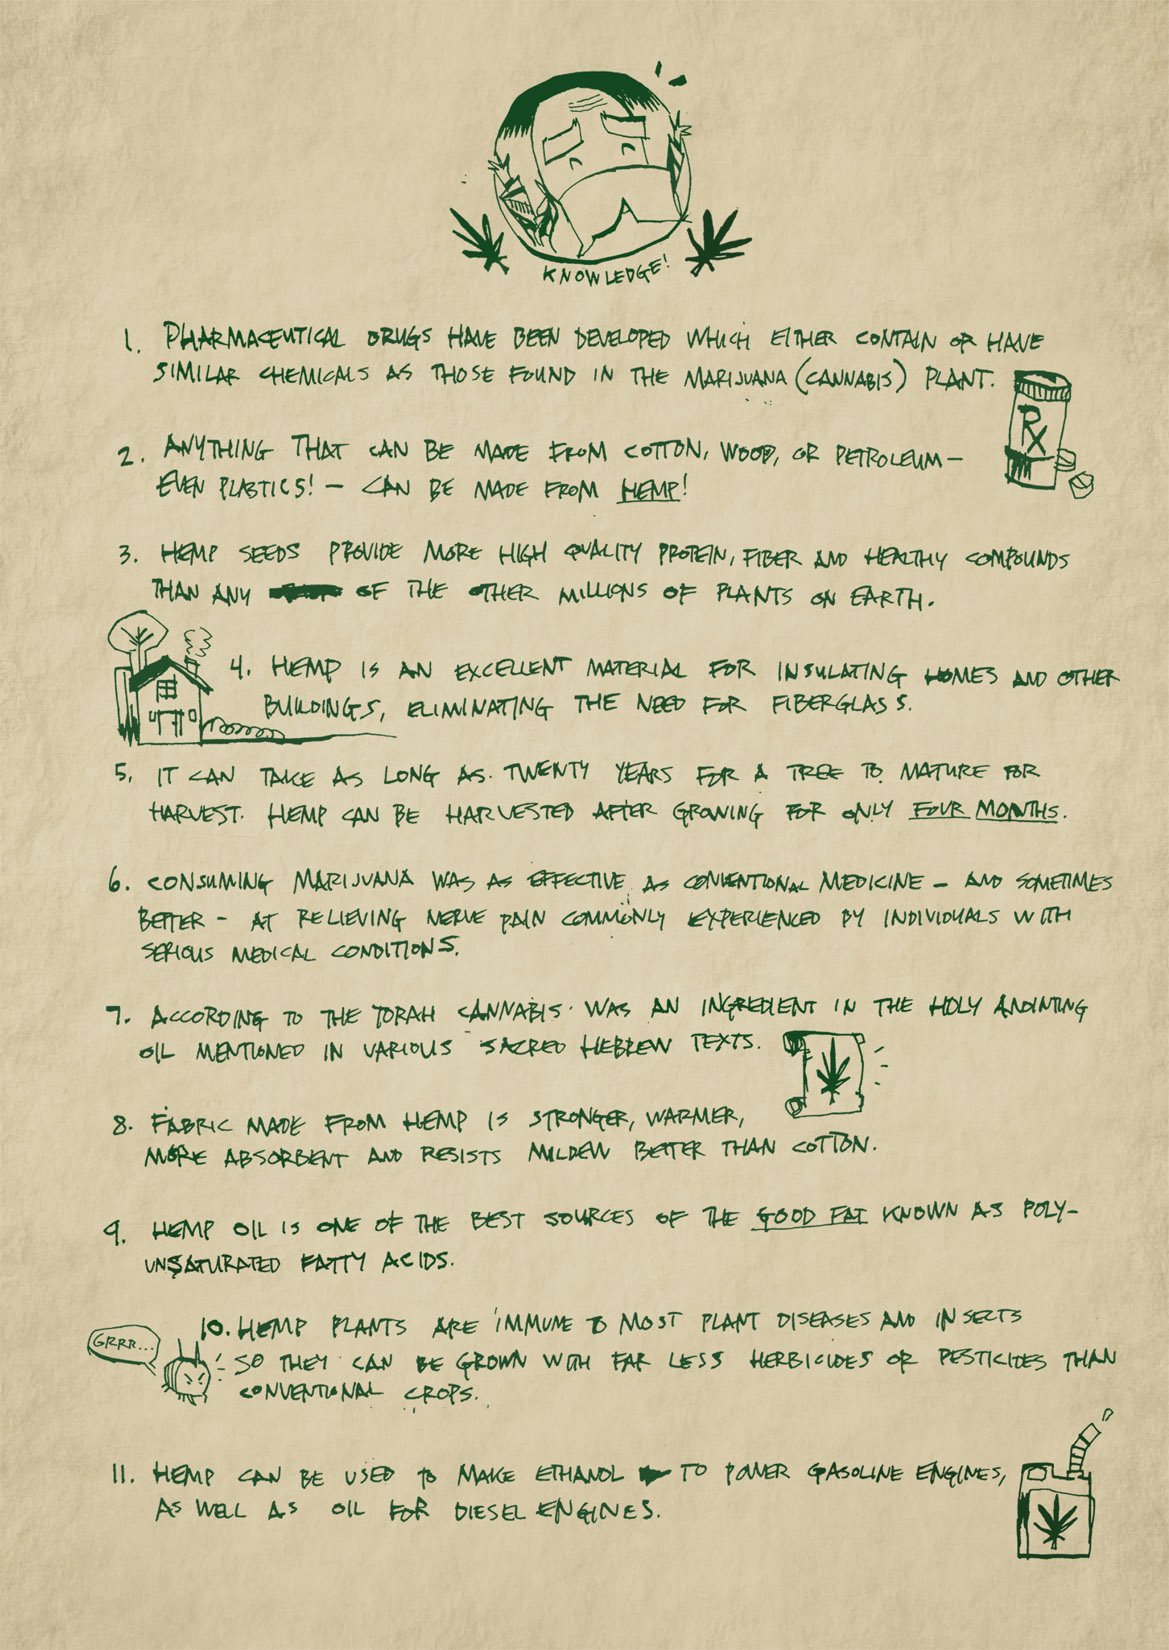 KNOWLEDGE!
1. PHARMACEUTICAL DRUGS HAVE BEEN DEVELOPED WHICH EITHER CONTAIN OR HAVE
SIMILAR CHEMICALS AS THOSE FOUND IN THE MARIJUANA (CANNABIS) PLANT.
RX
2. ANYTHING THAT CAN BE MADE FROM COTTON, WOOD, OR PETROLEUM –
EVEN PLASTICS! – CAN BE MADE FROM HEMP!
3. HEMP SEEDS PROVIDE MORE HIGH QUALITY PROTEIN, FIBER AND HEALTHY COMPOUNDS
THAN ANY OF THE OTHER MILLIONS OF PLANTS ON EARTH.
4. HEMP IS AN EXCELLENT MATERIAL FOR INSULATING HOMES AND OTHER
BUILDINGS, ELIMINATING THE NEED FOR FIBERGLASS.
5. IT CAN TAKE AS LONG AS TWENTY YEARS FOR A TREE TO MATURE FOR
HARVEST. HEMP CAN BE HARVESTED AFTER GROWING FOR ONLY FOUR MONTHS.
6. CONSUMING MARIJUANA WAS AS EFFECTIVE AS CONVENTIONAL MEDICINE – AND SOMETIMES
BETTER – AT RELIEVING NERVE PAIN COMMONLY EXPERIENCED BY INDIVIDUALS WITH
SERIOUS MEDICAL CONDITIONS.
7. ACCORDING TO THE TORAH CANNABIS WAS AN INGREDIENT IN THE HOLY ANOINTING
OIL MENTIONED IN VARIOUS SACRED HEBREW TEXTS.
8. FABRIC MADE FROM HEMP IS STRONGER, WARMER,
MORE ABSORBENT AND RESISTS MILDEW BETTER THAN COTTON.
9. HEMP OIL IS ONE OF THE BEST SOURCES OF THE GOOD FAT KNOWN AS POLY-
UNSATURATED FATTY ACIDS.
GRRR...
10. HEMP PLANTS ARE IMMUNE TO MOST PLANT DISEASES AND INSECTS
SO THEY CAN BE GROWN WITH FAR LESS HERBICIDES OR PESTICIDES THAN
CONVENTIONAL CROPS.
11. HEMP CAN BE USED TO MAKE ETHANOL TO POWER GASOLINE ENGINES,
AS WELL AS OIL FOR DIESEL ENGINES.